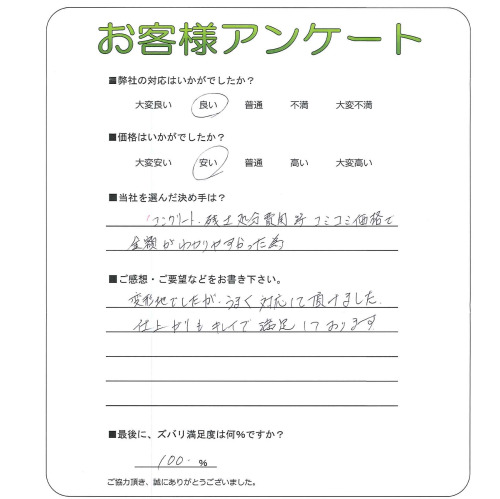 お客様アンケート
■弊社の対応はいかがでしたか？
大変良い 良い 普通 不満 大変不満
■価格はいかがでしたか？
大変安い 安い 普通 高い 大変高い
■当社を選んだ決め手は？
コンクリート・残土処分費用等 コミコミ価格で
金額がわかりやすかった為
■ご感想・ご要望などをお書き下さい。
変形地でしたが、うまく対応して頂けました。
仕上がりもキレイで満足しております
■最後に、ズバリ満足度は何％ですか？
100. ％
ご協力頂き、誠にありがとうございました。